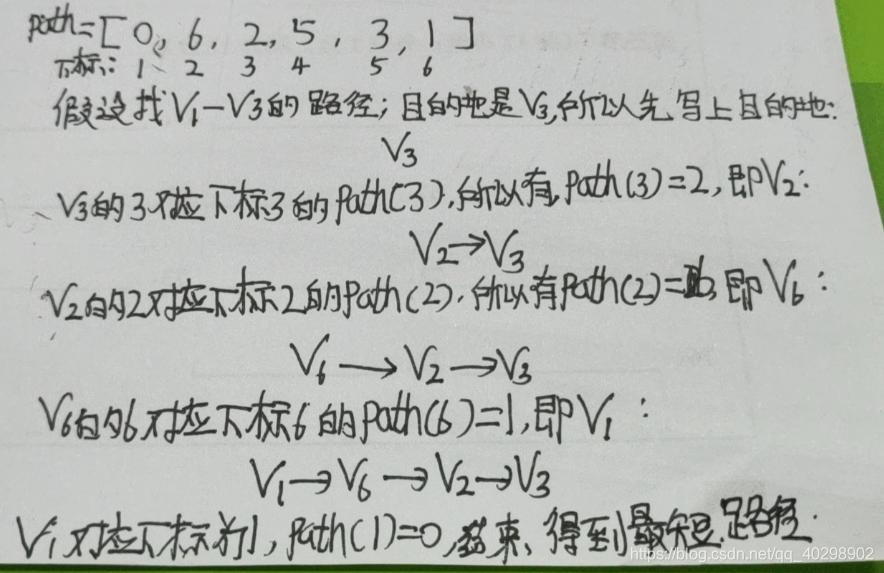 path=[ 0, 6, 2, 5, 3, 1 ]
下标: 1 2 3 4 5 6
假设找V1-V3的路径; 目的地是V3,所以先写上目的地:
V3
V3的3对应下标3的path(3),所以有path(3)=2,即V2:
V2→V3
V2的2对应下标2的path(2).所以有path(2)=6,即V6:
V6→V2→V3
V6的6对应下标6的path(6)=1,即V1:
V1→V6→V2→V3
V1对应下标为1, path(1)=0,结束、得到最短路径.
https://blog.csdn.net/qq_40298902